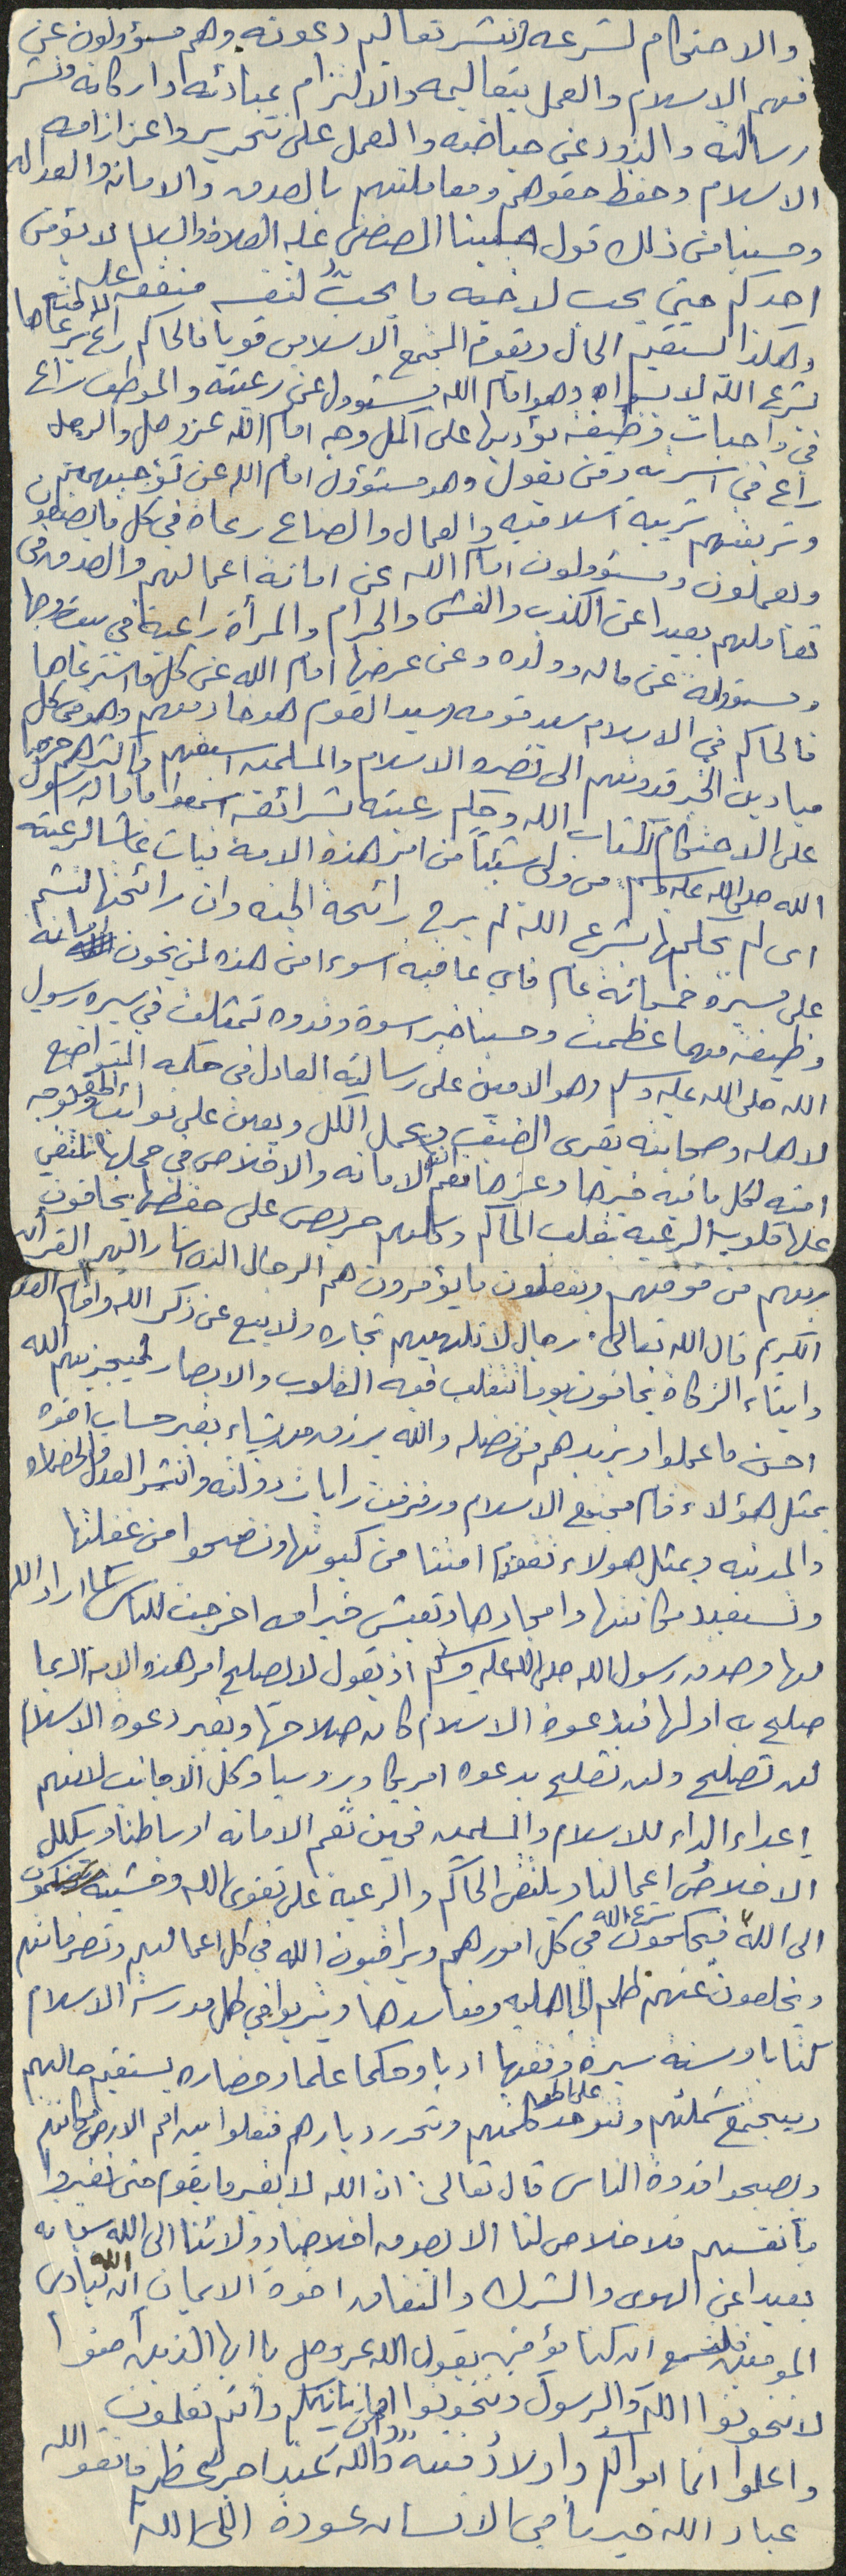 والاحتكام لشرعه ونشر تعاليم دعوته وهم مسؤولون عن
فهم الاسلام والعمل بتعاليمه والالتزام بمبادئه واركانه ونشر
رسالته والذود عن حياضه والعمل على تحرير واعزاز امه
الاسلام وحفظ حقوقهم ومعاملتهم بالصدق والامانه والعداله
وحسبنا من ذلك قول نبينا المصطفى عليه الصلاة والسلام لا يؤمن
احدكم حتى يحب لاخيه ما يحبُّ لنفسه متفق عليه
وهكذا يستقيم الحال ويقوم المجتمع الاسلامي قويا فالحاكم راع يرعاها
بشرع الله لا بسواه وهو امام الله مسئوول عن رعيته والموظف راع
في واجبات وظيفته يؤديها على اكمل وجه امام الله عز وجل والرجل
راع في اسرته ومن يعول وهو مسئوول امام الله عن توجيههم
وتربيتهم تربية اسلاميه والعمال والصناع رعاه في كل ما يصنعون
ويعملون ومسئوولون امام الله عن امانة اعمالهم والصدق في
تعاملهم بعيدا عن الكذب والغش والحرام والمرأة راعية في بيت زوجها
ومسؤوله عن ماله وولده وعن عرضها امام الله عن كل ما استرعاها
فالحاكم في الاسلام سيد قومه وسيد القوم هو خادمهم وهو في كل
ميادين الخير قدوتهم الى نصره الاسلام والمسلمين اسبقهم واكثرهم حرصا
على الاحتكام لكتاب الله وحكم رعيته بشرائعه اسمعوا ما قاله رسول
الله صلى الله عليه وسلم من ولى شيئاً من امر هذه الامة فبات غاشا لرعيته
اى لم يحكمها بشرع الله لم يرح رائحة الجنه وان رائحتها لتشم
على مسيرة خمسمائة عام فاي عاقبه اسوء من هذه لمن يخون امانه
وظيفته مهما عظمت وحسبنا خير اسوة وقدوه تمثلت في سيره رسول
الله صلى الله عليه وسلم وهو الامين على رسالته العادل في حكمه المتواضع
لاهله وصحابته يقرى الضيف ويحمل الكل ويعين على نوائب الحق ويوجه
امته لكل ما فيه خيرها وعزها فعم الامانه والاخلاص في مجملها تلتقي
عليها قلوب الرعيه بقلب الحاكم وكلهم حريص على حفظها يخافون
ربهم من فوقهم ويفعلون ما يؤمرون هم الرجال الذين اشار اليهم القرآن
الكريم قال الله تعالى. رجال لا تلهيهم تجاره ولا بيع عن ذكر الله واقام الصلاة
وايتاء الزكاة يخافون يوما تتقلب فيه القلوب والابصار ليجزيهم الله
احسن ما عملوا ويزيدهم من فضله والله يرزق من يشاء بغير حساب اخوه
بمثل هؤلاء قام مجتمع الاسلام ورفرفت رايات دولته وانتشر العدل والحضاره
والمدنيه وبمثل هولاء تقوم امتنا من كبوتها وتصحوا من غفلتها
وتستعيد مكانتها وامجادها وتعيش خير امه اخرجت للناس كما اراد الله
لها وصدق رسول الله صلى الله عليه وسلم اذ يقول لا يصلح امر هذه الامة الا بما
صلح به اولها فبدعوة الاسلام كان صلاحها وبغير دعوة الاسلام
لن تصلح ولن تصلح بدعوه امريكا وروسيا وكل الاجانب لانهم
اعداء الداء للاسلام والمسلمين فحين تعم الامانه اوساطنا ويكلل
الاخلاص اعمالنا ويلتقى الحاكم والرعية على تقوى الله وخشيته
الى الله فيحكمون شرع الله في كل امورهم ويراقبون الله في كل اعمالهم وتصرفاتهم
ويخلعون عنهم ظلم الجاهليه ومفاسدها ويتربوا في ظل مدرسة الاسلام
كتابا وسنة سيرة وفقها ادبا وحكما علما وحضاره يستقيم حالهم
ويجتمع شملهم وتتوحد على الحق كلمتهم وتحرر ديارهم فتعلوا بين امم الارض مكانتهم
ويصبحوا قدوة الناس قال تعالى: ان الله لا يغير ما بقوم حتى يغيروا
ما بأنفسهم فلا خلاص لنا الا بصدق اخلاصنا وولائنا الى الله سبحانه
بعيدا عن الهوى والشرك والنفاق اخوة الايمان ان الله ينادى
المومنين فلنسمع ان كنا مؤمنين يقول الله عز وجل يا ايها الذين آمنوا
لا تخونوا الله والرسول وتخونوا اماناتكم وأنتم تعلمون
واعلموا انما اموالكم واولادكم فتنه وان الله عنده اجر عظيم فاتقوا الله
عباد الله خير ما في الانسان عودة الى الله